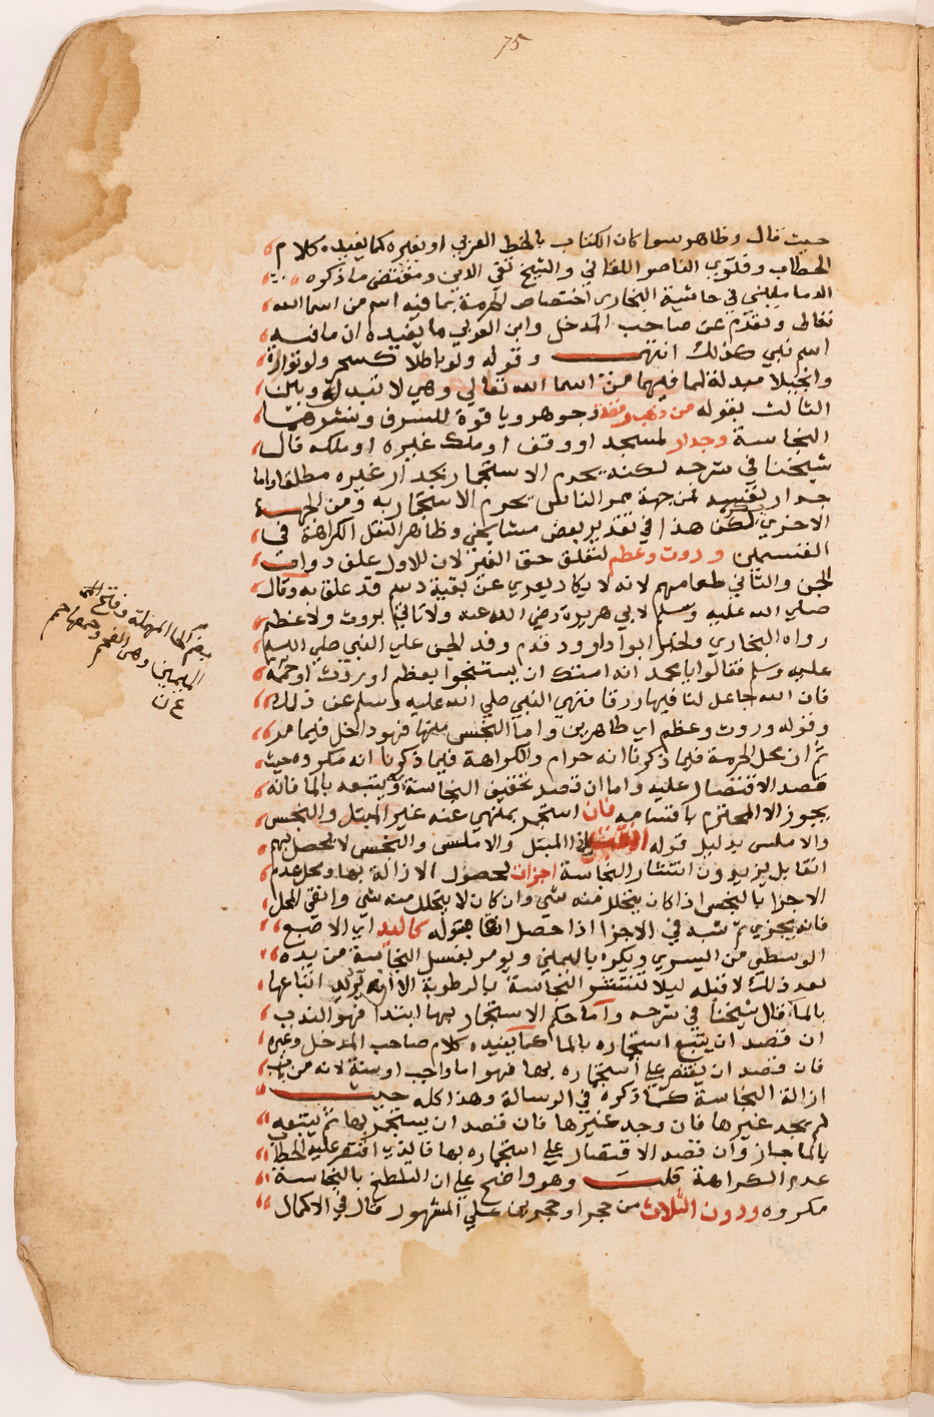 75
حيث قال وظاهره سوا كان الكتاب بالخط العربي او بغيره كما يفيده كلام
الحطاب وفتوي الناصر اللقاني والشيخ تقي الدين ومقتضي ما ذكره
الدماميني في حاشية البخاري اختصاص الحرمة بما فيه اسم من اسما الله
تعالي وتقدم عن صاحب المدخل وابن العربي ما يفيده ان ما فيه
اسم نبي كذلك انتهي وقوله ولو باطلا كسحر ولو توراة
وانجيلا مبدلة لما فيهما من اسما الله تعالي وهي لا تبدل وبين
الثالث بقوله من ذهب وفضة وجوهر وياقوتة للسرف وتنشرهما
النجاسة وجدار لمسجد او وقف او ملك غيره او ملكه قال
شيخنا في شرحه لكنه يحرم الاستجمار بجدار غيره مطلقا واما
جداره من جهة ممر الناس يحرم الاستجمار به ومن الجهة
الاخري لكن هذا في تقدير بعض مشايخي وظاهر النقل الكراهة في
القسمين وروث وعظم لتعلق حق الغير لان للاول علف دواب
الجن والثاني طعامهم لانه لا يكاد يعري عن بقية دسم قد علق به وقال
صلي الله عليه وسلم لابي هريرة رضي الله عنه ولا تاتني بروث ولا عظم
رواه البخاري ولخبر ابو داوود قدم وفد الجن علي النبي صلي الله
عليه وسلم فقالوا يا محمد انه امتك ان يستنجوا بعظم او روث او حممة
فان الله جاعل لنا فيها رزقا فنهي النبي صلي الله عليه وسلم عن ذلك
وقوله وروث وعظم اي طاهرين واما النجس منها فهو داخل فيما مر
ثم ان محل الحرمة فيما ذكرنا انه حرام والكراهة فيما ذكرنا انه مكروه حيث
قصد الاقتصار عليه واما ان قصد تخفيف النجاسة ويتبعه بالما فانه
يجوز الا المحترم باقسامه فان استجمر بمنهي عنه غير المبتل والنجس
والاملس بدليل قوله انقت اذ المبتل والاملس والنجس لا يحصل بهم
انقا بل يزيدون انتشار النجاسة اجزات لحصول الازالة بها ومحل عدم
الاجزا بالنجس اذا كان يتحلل منه شي وان كان لا يتحلل منه شي وانقي المحل
فانه يجزي ثم شبه في الاجزا اذا حصل انقا بقوله كاليد اي الاصبع
الوسطي من اليسري ويكره باليمني ويومر بغسل النجاسة من يده
بعد ذلك لا قبله ليلا تنتشر النجاسة بالرطوبة الا انه يريد اتباعها
بالما قال شيخنا في شرحه واما حكم الاستجمار بها ابتدا فهو الندب
ان قصد ان يتبع استجماره بالما كما يفيده كلام صاحب المدخل وغيره
فان قصد ان يقتصر علي استجماره بها فهو اما واجب او سنة لانه من باب
ازالة النجاسة كما ذكره في الرسالة وهذا كله حيث
لم يجد غيرها فان وجد غيرها فان قصد ان يستجمر بها ثم يتبعه
بالما جاز وان قصد الاقتصار علي استجماره بها فالذي اقتصر عليه الحطاب
عدم الكراهة قلت وهو واضح علي ان التلطخ بالنجاسة
مكروه ودون الثلاث من حجر او حجرين علي المشهور قال في الاكمال
بضم الحا المهملة وفتح
الميمين وهي الفحم وجمعها حمم